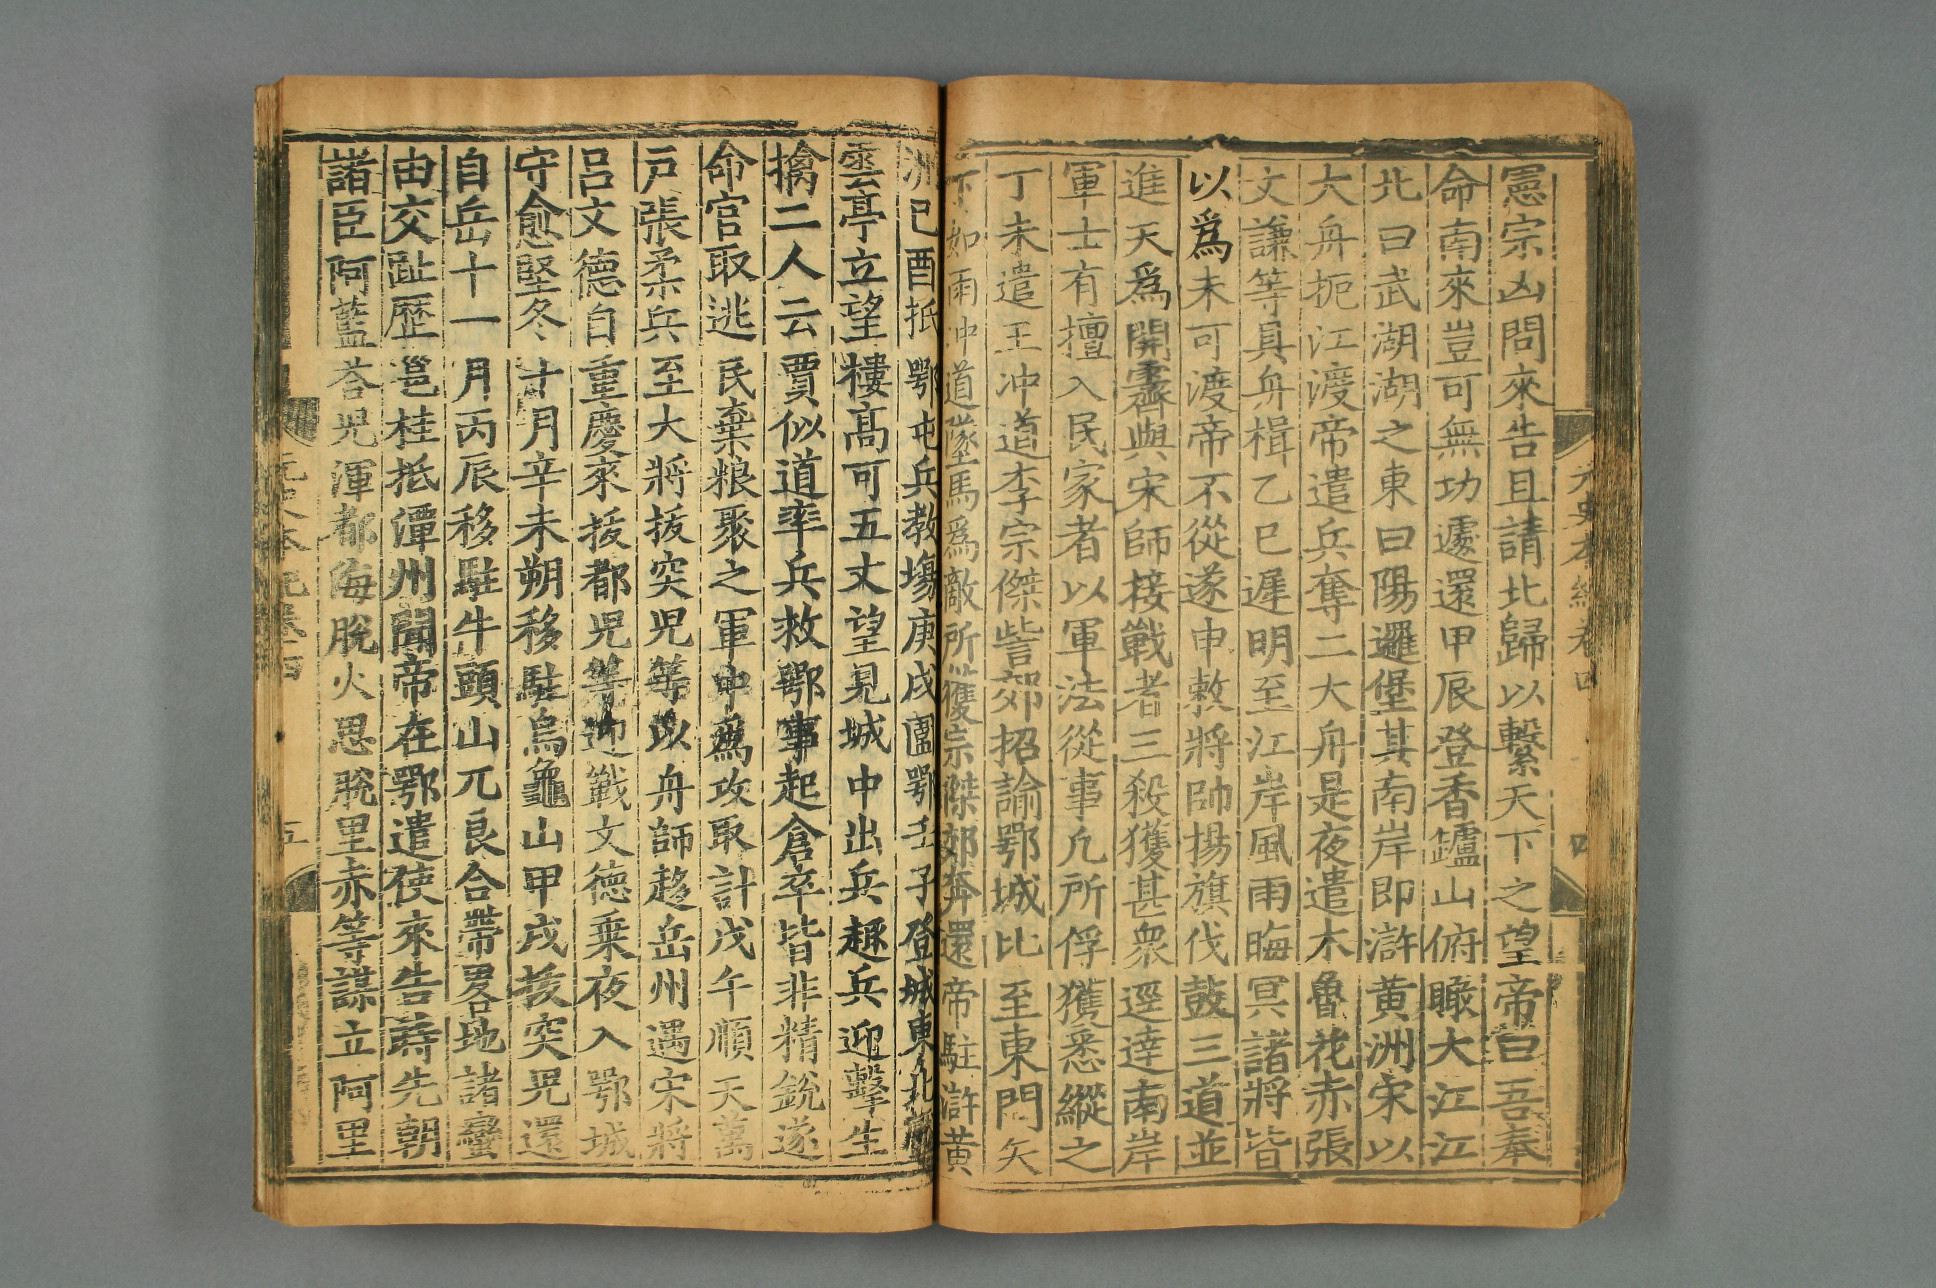 元史本紀卷四
四
憲宗凶問來告且請北歸以繫天下之望帝曰吾奉
命南來豈可無功遽還甲辰登香罏山俯瞰大江江
北曰武湖湖之東曰陽邏堡其南岸即滸黃洲宋以
大舟扼江渡帝遣兵奪二大舟是夜遣木魯花赤張
文謙等具舟楫乙巳遲明至江岸風雨晦冥諸將皆
以爲未可渡帝不從遂申敕將帥揚旗伐鼓三道並
進天爲開霽與宋師接戰者三殺獲甚衆逕達南岸
軍士有擅入民家者以軍法從事凡所俘獲悉縱之
丁未遣王冲道李宗傑訾郊招諭鄂城比至東門矢
下如雨冲道墜馬爲敵所獲宗傑郊奔還帝駐滸黃
洲己酉抵鄂屯兵教塲庚戌圍鄂壬子登城東北
雲亭立望樓高可五丈望見城中出兵趣兵迎擊生
擒二人云賈似道率兵救鄂事起倉卒皆非精銳遂
命官取逃民棄粮聚之軍中爲攻取計戊午順天萬
戶張柔兵至大將拔突兒等以舟師趍岳州遇宋將
吕文德自重慶來拔都兒等迎戰文德乗夜入鄂城
守愈堅冬十月辛未朔移駐烏龜山甲戌拔突兒還
自岳十一月丙辰移駐牛頭山兀良合帶畧地諸蠻
由交趾歷邕桂抵潭州聞帝在鄂遣使來告時先朝
諸臣阿藍荅兒渾都海脫火思脫里赤等謀立阿里
元史本紀卷四
五